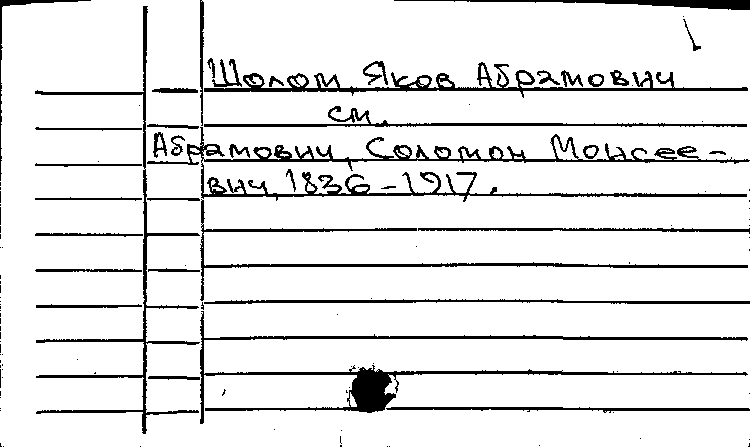 Шолом, Яков Абрамович
см.
Абрамович, Соломон Моисее-
вич, 1836-1917.